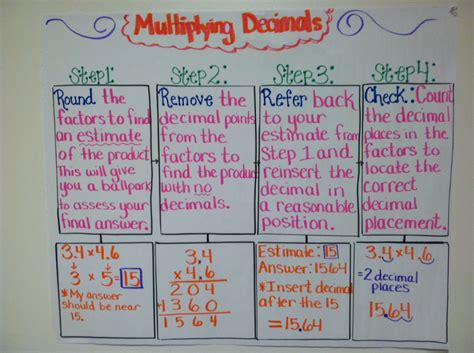 Multiplying Decimals
Step 1:
Round the
factors to find
an estimate
of the product
This will give
you a ballpark
to assess your
final answer.
3.4 x 4.6
3 x 5 = 15
*My answer
should be near
15.
Step 2:
Remove the
decimal points
from the
factors to
find the product
with no
decimals.
3,4
x 4.6
204
+1360
1564
Step 3:
Refer back
to your
estimate from
Step 1 and
reinsert the
decimal in
a reasonable
position.
Estimate: 15
Answer: 1564
*Insert decimal
after the 15
=15.64
Step 4:
Check: Count
the decimal
places in the
factors to
locate the
correct
decimal
placement.
3.4 x 4.6
=2 decimal
places
15.64